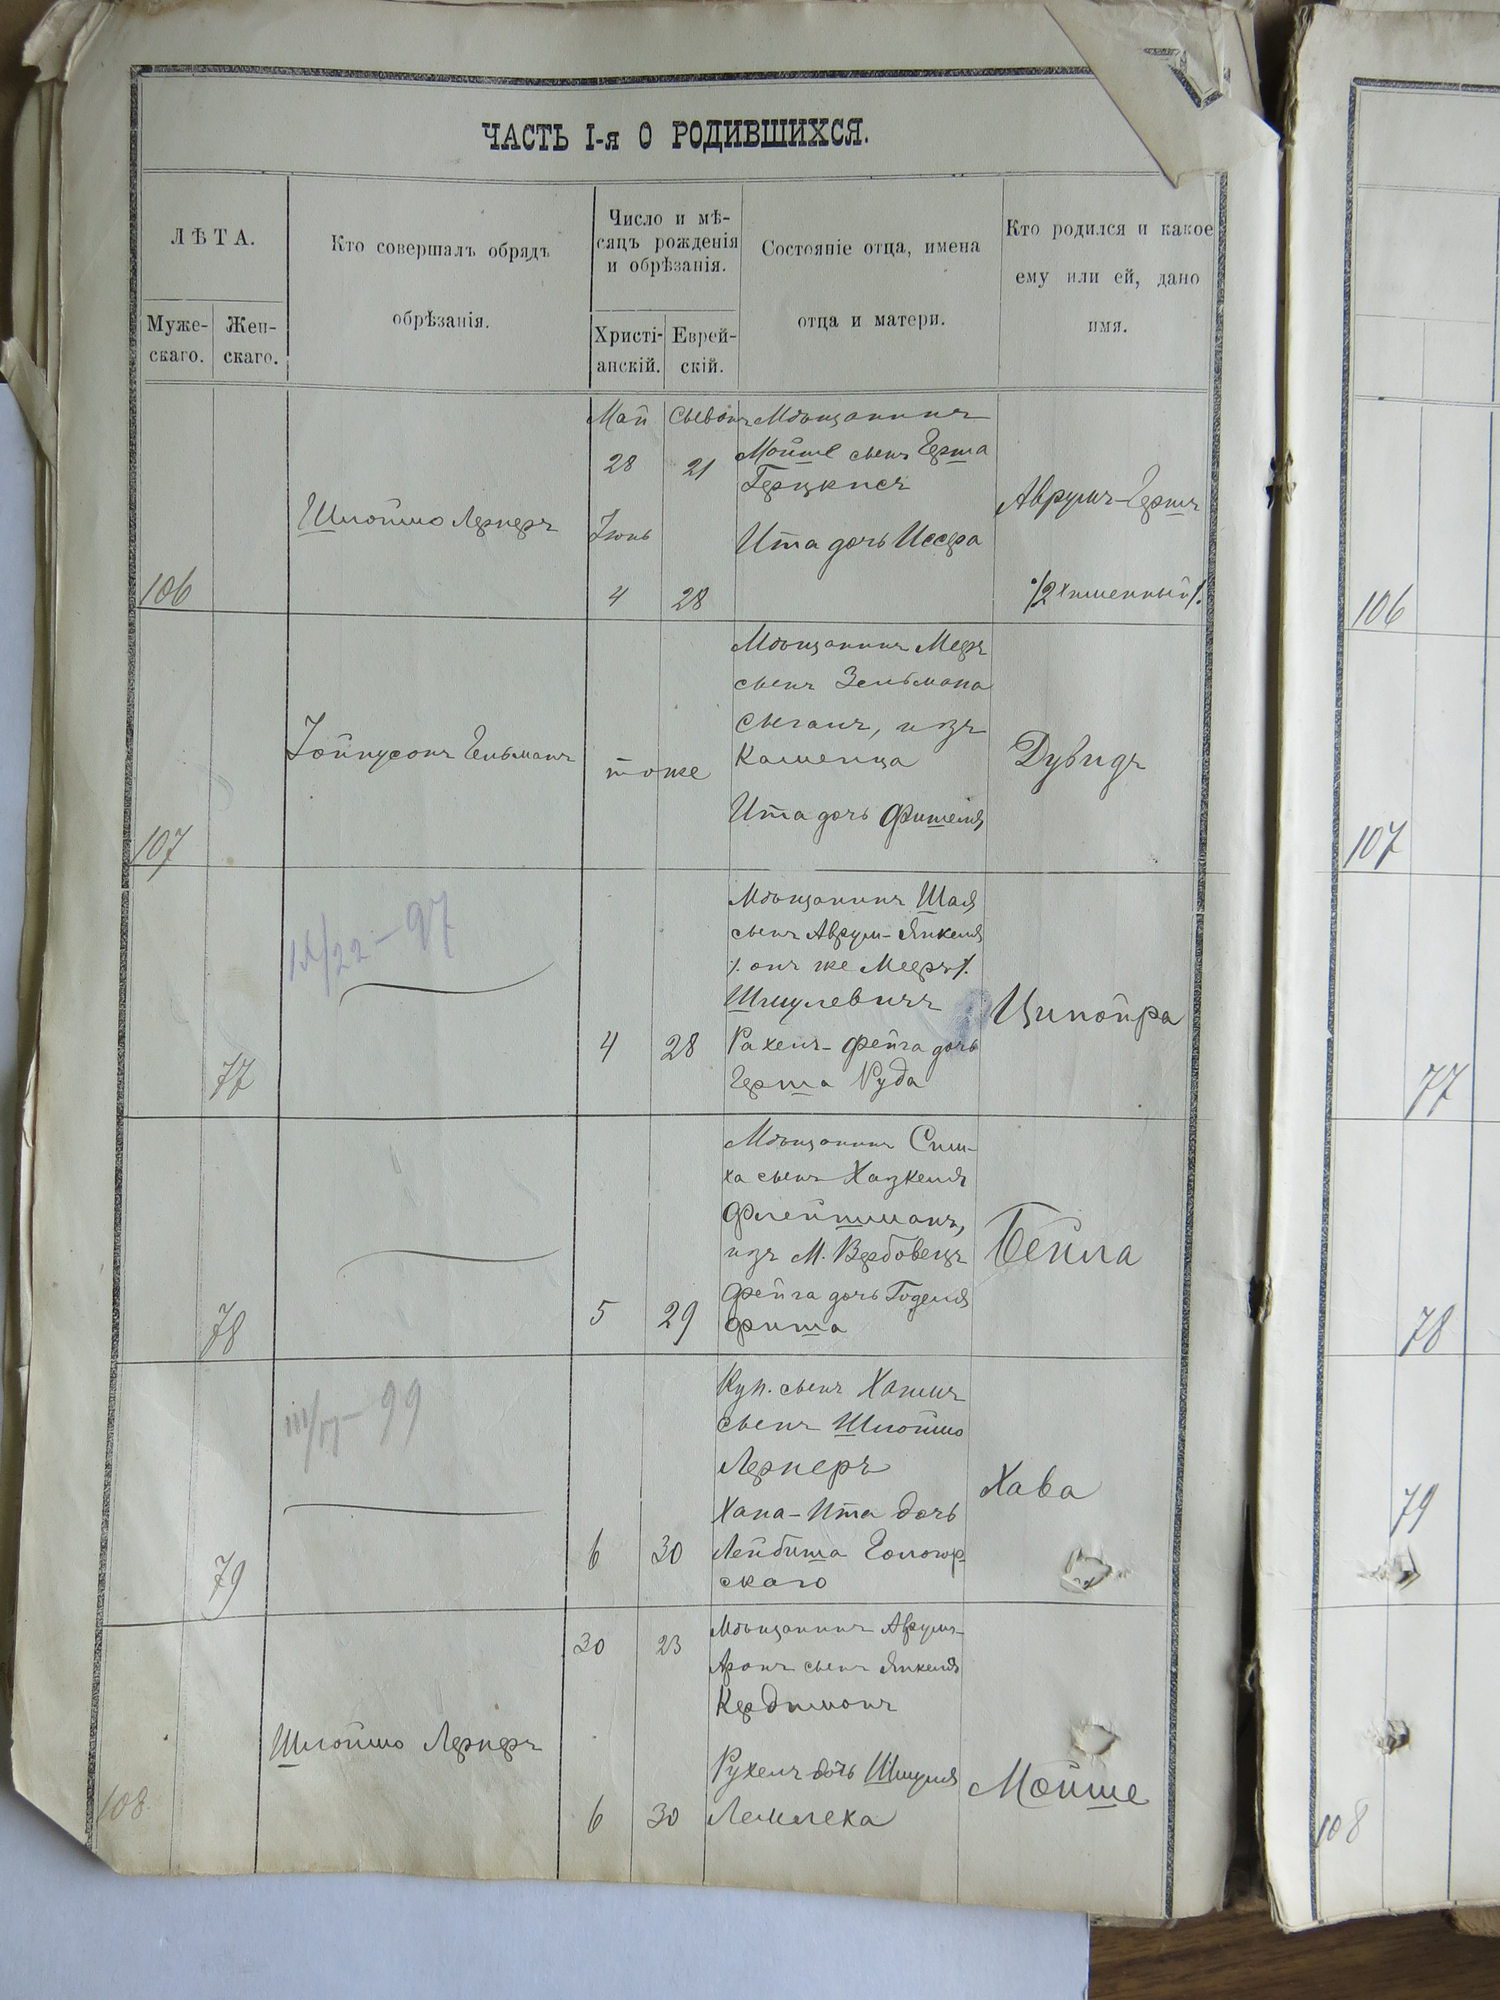 ЧАСТЬ I-я О РОДИВШИХСЯ.
ЛѢТА.
Муже-
скаго.
Жен-
скаго.
Кто совершалъ обрядъ
обрѣзанія.
Число и мѣ-
сяцъ рожденія
и обрѣзанія.
Христі-
анскій.
Еврей-
скій.
Состояніе отца, имена
отца и матери.
Кто родился и какое
ему или ей, дано
имя.
106
Шлоймо Лернеръ
Май
28
Іюнь
4
Сывонъ
21
28
Мѣщанинъ
Мойше сынъ Герша
Герцкисъ
Ита дочь Иссера
Аврумъ-Гершъ
107
Гельманъ
тоже
Мѣщанинъ Мееръ
сынъ Зельмана
Сыганъ, изъ
Каменца
Ита дочь Фишеля
Дувидъ
77
22-97
4
28
Мѣщанинъ Шая
сынъ Аврум-Янкеля
/. онъ же Мееръ/.
Шмулевичъ
Рахель-Фейга дочь
Герша Руда
Ципойра
78
5
29
Мѣщанинъ Сим-
ха сынъ Хацкеля
Флейшманъ,
изъ М. Вербовецъ
Фейга дочь Годеля
Фиша
Бейла
79
99
6
30
Куп. сынъ Хаимъ
сынъ Шлоймо
Лернеръ
Хана-Ита дочь
Лейбиша Гологор
скаго
Хава
108
Шлоймо Лернеръ
30
23
6
30
Мѣщанинъ Аврумъ-
Аронъ сынъ Янкеля
Кердиманъ
Рухель дочь Шмуля
Лемлеха
Мойше
106
107
77
78
79
108